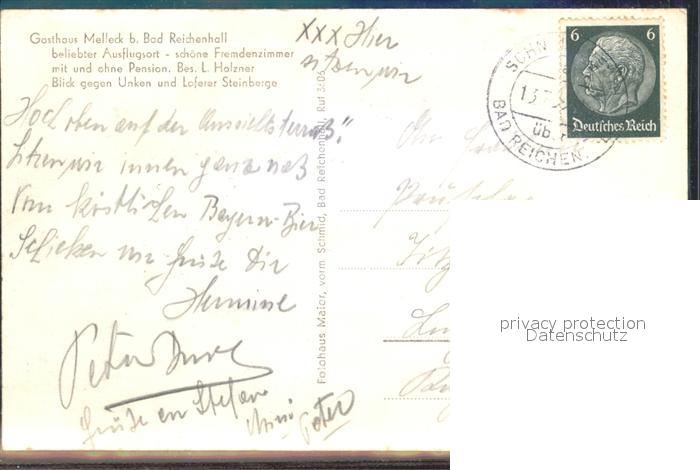 Gasthaus Melleck b. Bad Reichenhall
beliebter Ausflugsort - schöne Fremdenzimmer
mit und ohne Pension. Bes. L. Holzner
Blick gegen Unken und Loferer Steinberge
XXX Hier
sitzen wir
Hoch oben auf der Aussichtsterraß"
sitzen wir innen ganz naß
Vom köstlichen Bayern-Bier
Schicken wir Grüße Dir
Hermine
Peter
Grüße an Stefan
Mimi
Peter
Fotohaus Maier, vorm Schmid, Bad Reichenhall, Ruf 3406
6 6
Deutsches Reich
SCHN
13.7.
üb.
BAD REICHEN
privacy protection
Datenschutz